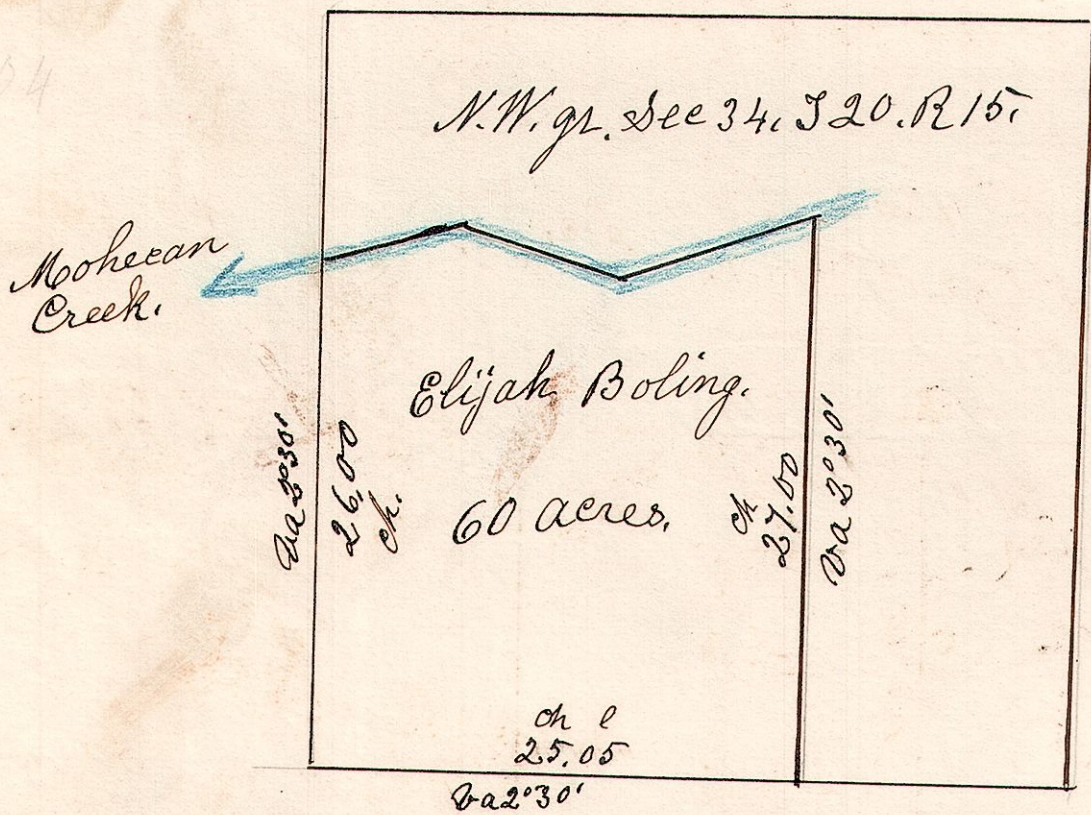 04
N.W. qr. Sec 34. T 20. R 15.
Mohecan
Creek.
Elijah Boling.
60 acres.
Va 2°30'
26,00
ch.
ch
27.00
Va 2°30'
ch l
25.05
Va 2°30'